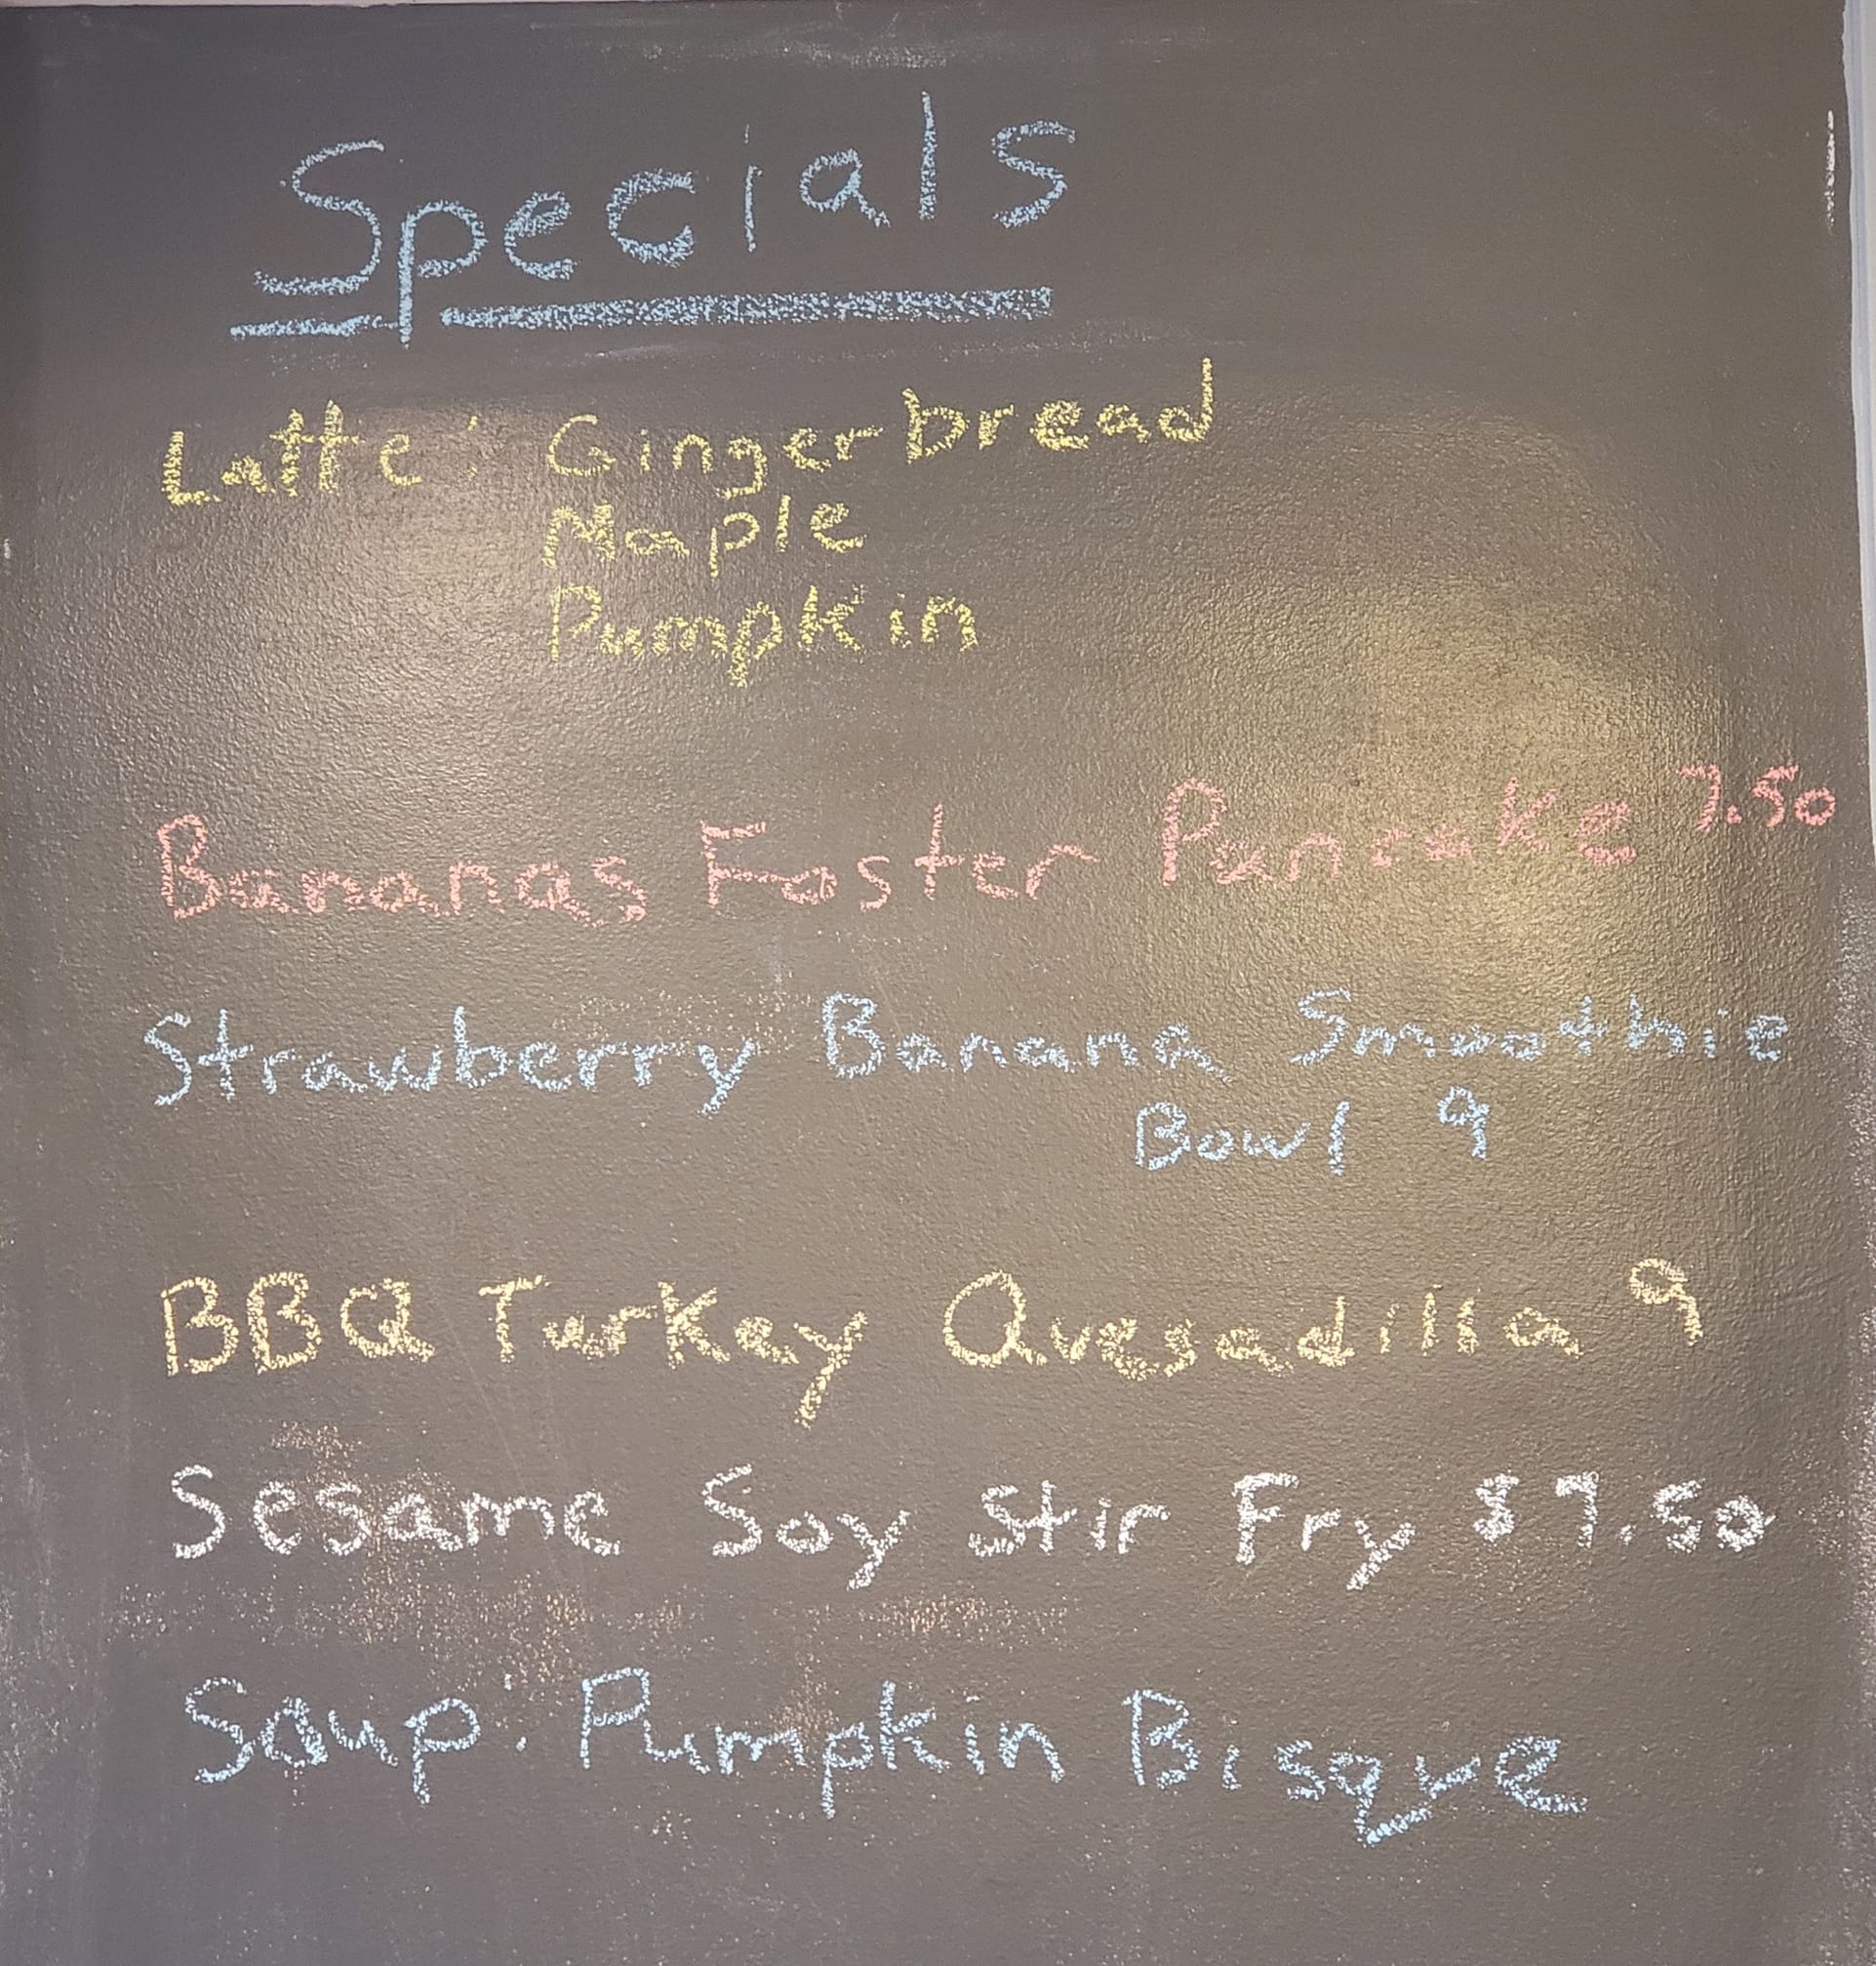 Specials
Latte: Gingerbread
Maple
Pumpkin
Bananas Foster Pancake 7.50
Strawberry Banana Smoothie
Bowl 9
BBQ Turkey Quesadilla 9
Sesame Soy Stir Fry $7.50
Soup: Pumpkin Bisque